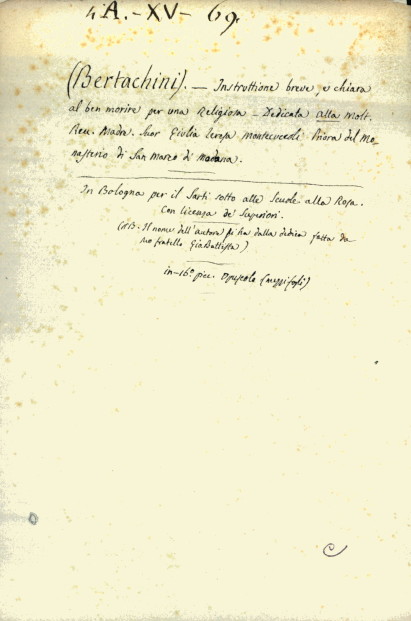 4A.-XV-69.
(Bertachini). — Instruttione breve, e chiara
al ben morire per una Religiosa - Dedicata alla Molt.
Rev. Madre. Suor Giulia Teresa Montecuccoli Priora del Mo-
nasterio di San Marco di Modana.
In Bologna per il Sarti sotto alle Scuole alla Rosa.
Con licenza de' Superiori.
Il nome dell'autore si ha dalla dedica fatta da
suo fratello Gia Battista)
in-16° picc. Opuscolo (mezzi fogli)